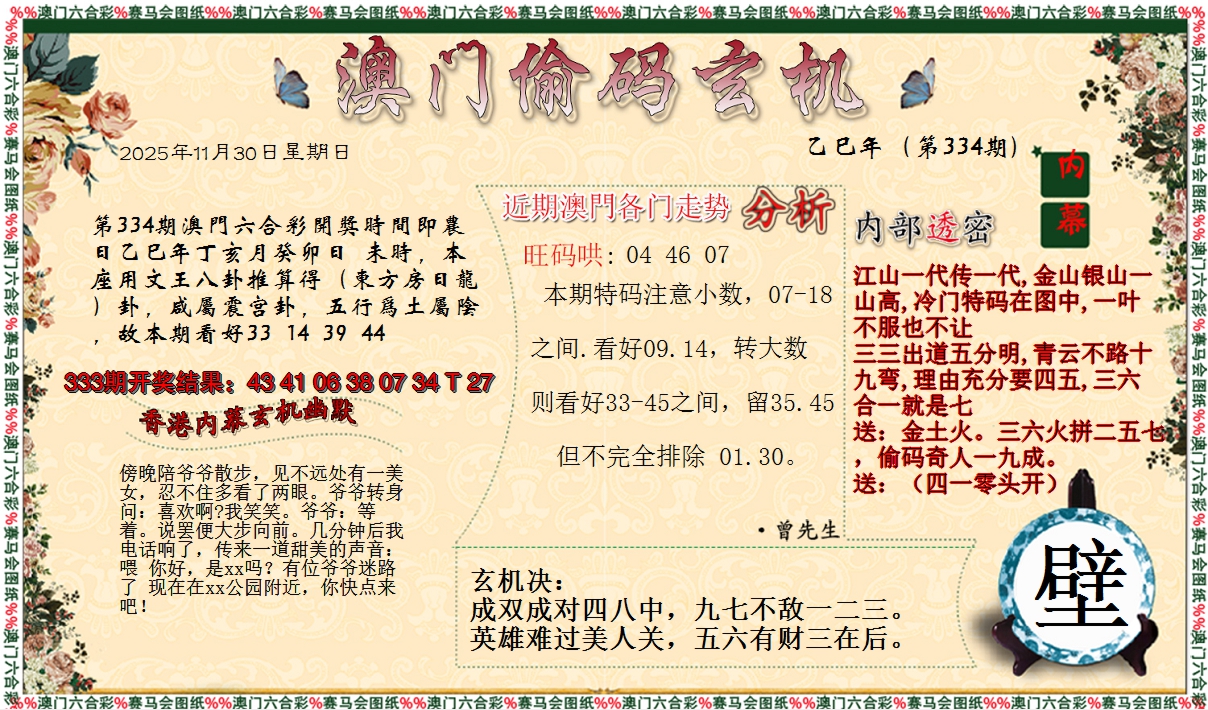 %%澳门六合彩%赛马会图纸%%澳门六合彩%赛马会图纸%%澳门六合彩%赛马会图纸%%澳门六合彩%赛马会图纸%%澳门六合彩%赛马会图纸%%澳门六合彩%赛马会图纸%%
澳门偷码玄机
2025年11月30日星期日
乙巳年（第334期）
第334期澳門六合彩開獎時間即農
日乙巳年丁亥月癸卯日 未時，本
座用文王八卦推算得（東方房日龍
）卦，咸屬震宫卦，五行爲土屬陰
，故本期看好33 14 39 44
333期开奖结果：43 41 06 38 07 34 T 27
香港内幕玄机幽默
傍晚陪爷爷散步，见不远处有一美
女，忍不住多看了两眼。爷爷转身
问：喜欢啊?我笑笑。爷爷：等
着。说罢便大步向前。几分钟后我
电话响了，传来一道甜美的声音：
喂 你好，是xx吗？有位爷爷迷路
了 现在在xx公园附近，你快点来
吧！
近期澳門各门走势 分析
旺码哄: 04 46 07
本期特码注意小数，07-18
之间.看好09.14，转大数
则看好33-45之间，留35.45
但不完全排除 01.30。
·曾先生
内幕
内部透密
江山一代传一代,金山银山一
山高,冷门特码在图中,一叶
不服也不让
三三出道五分明,青云不路十
九弯,理由充分要四五,三六
合一就是七
送：金土火。三六火拼二五七
，偷码奇人一九成。
送：（四一零头开）
玄机决：
成双成对四八中，九七不敌一二三。
英雄难过美人关，五六有财三在后。
壁
%%澳门六合彩%赛马会图纸%%澳门六合彩%赛马会图纸%%澳门六合彩%赛马会图纸%%澳门六合彩%赛马会图纸%%澳门六合彩%赛马会图纸%%澳门六合彩%赛马会图纸%%